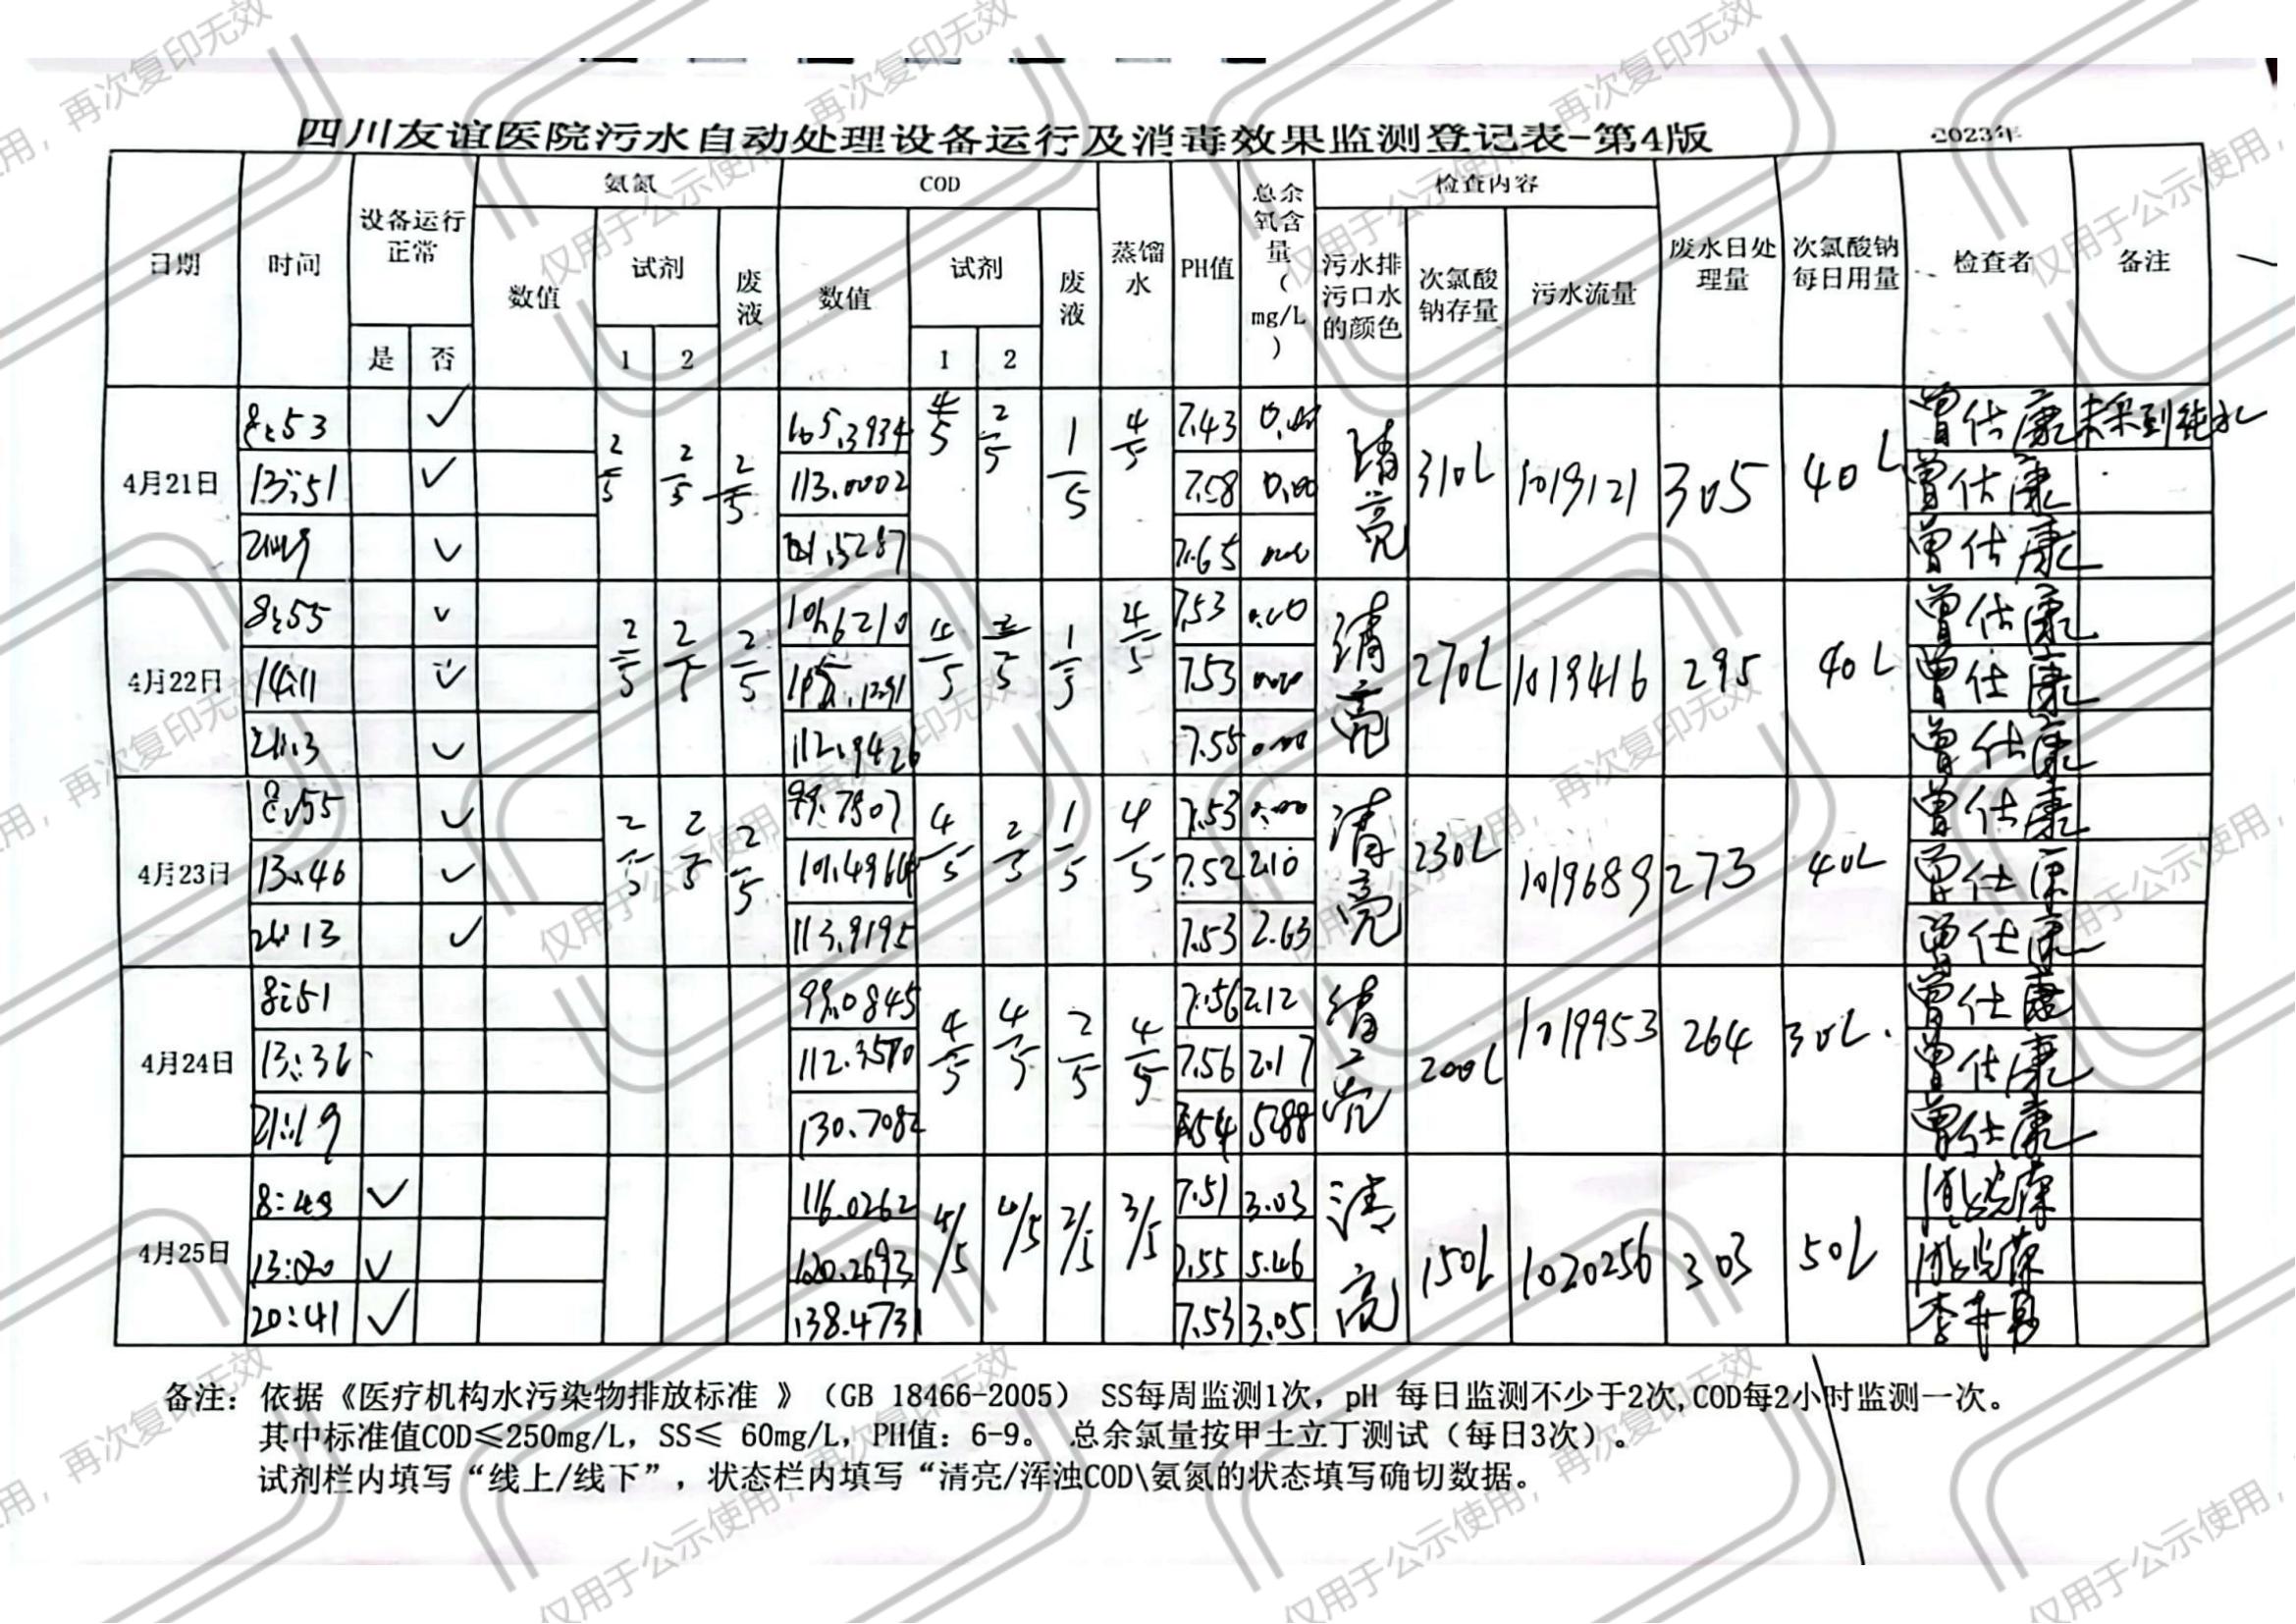 四川友谊医院污水自动处理设备运行及消毒效果监测登记表-第4版 2023年
日期 时间 设备运行正常 氨氮 COD 蒸馏水 PH值 总余氧含量(mg/L) 检查内容 废水日处理量 次氯酸钠每日用量 检查者 备注
数值 试剂 废液 数值 试剂 废液 污水排污口水的颜色 次氯酸钠存量 污水流量
是 否 1 2 1 2
4月21日 2/5 2/5 2/5 4/5 2/5 1/5 4/5 清亮 310L 1019121 305 40L
8:53 ✓ 165.3934 7.43 0.00 曾仕康 未采到纯水
13:51 ✓ 113.0002 7.58 0.00 曾仕康
✓ 7.65 曾仕康
4月22日 2/5 2/5 2/5 4/5 2/5 1/5 4/5 清亮 270L 1019416 295 40L
8:55 ✓ 101.6210 7.53 0.00 曾仕康
14:11 ✓ 7.53 0.00 曾仕康
21:13 ✓ 112.9426 7.55 0.00 曾仕康
4月23日 2/5 2/5 2/5 4/5 2/5 1/5 4/5 清亮 230L 1019689 273 40L
8:55 ✓ 99.7907 7.53 0.00 曾仕康
13:46 ✓ 101.4964 7.52 2.10 曾仕康
21:13 ✓ 113.9195 7.53 2.63 曾仕康
4月24日 4/5 4/5 2/5 4/5 清亮 200L 1019953 264 30L.
8:51 99.0845 7.56 2.12 曾仕康
13:36 112.3570 7.56 2.17 曾仕康
21:19 130.7082 7.54 5.88 曾仕康
4月25日 4/5 4/5 2/5 3/5 清亮 150L 1020256 303 50L
8:49 ✓ 116.0262 7.51 3.03
13:20 ✓ 120.2693 7.55 5.46
20:41 ✓ 138.4731 7.53 3.05
备注：依据《医疗机构水污染物排放标准 》（GB 18466-2005） SS每周监测1次，pH 每日监测不少于2次,COD每2小时监测一次。
其中标准值COD≤250mg/L，SS≤ 60mg/L，PH值：6-9。 总余氯量按甲土立丁测试（每日3次）。
试剂栏内填写“线上/线下”，状态栏内填写“清亮/浑浊COD\氨氮的状态填写确切数据。
仅用于公示使用，再次复印无效